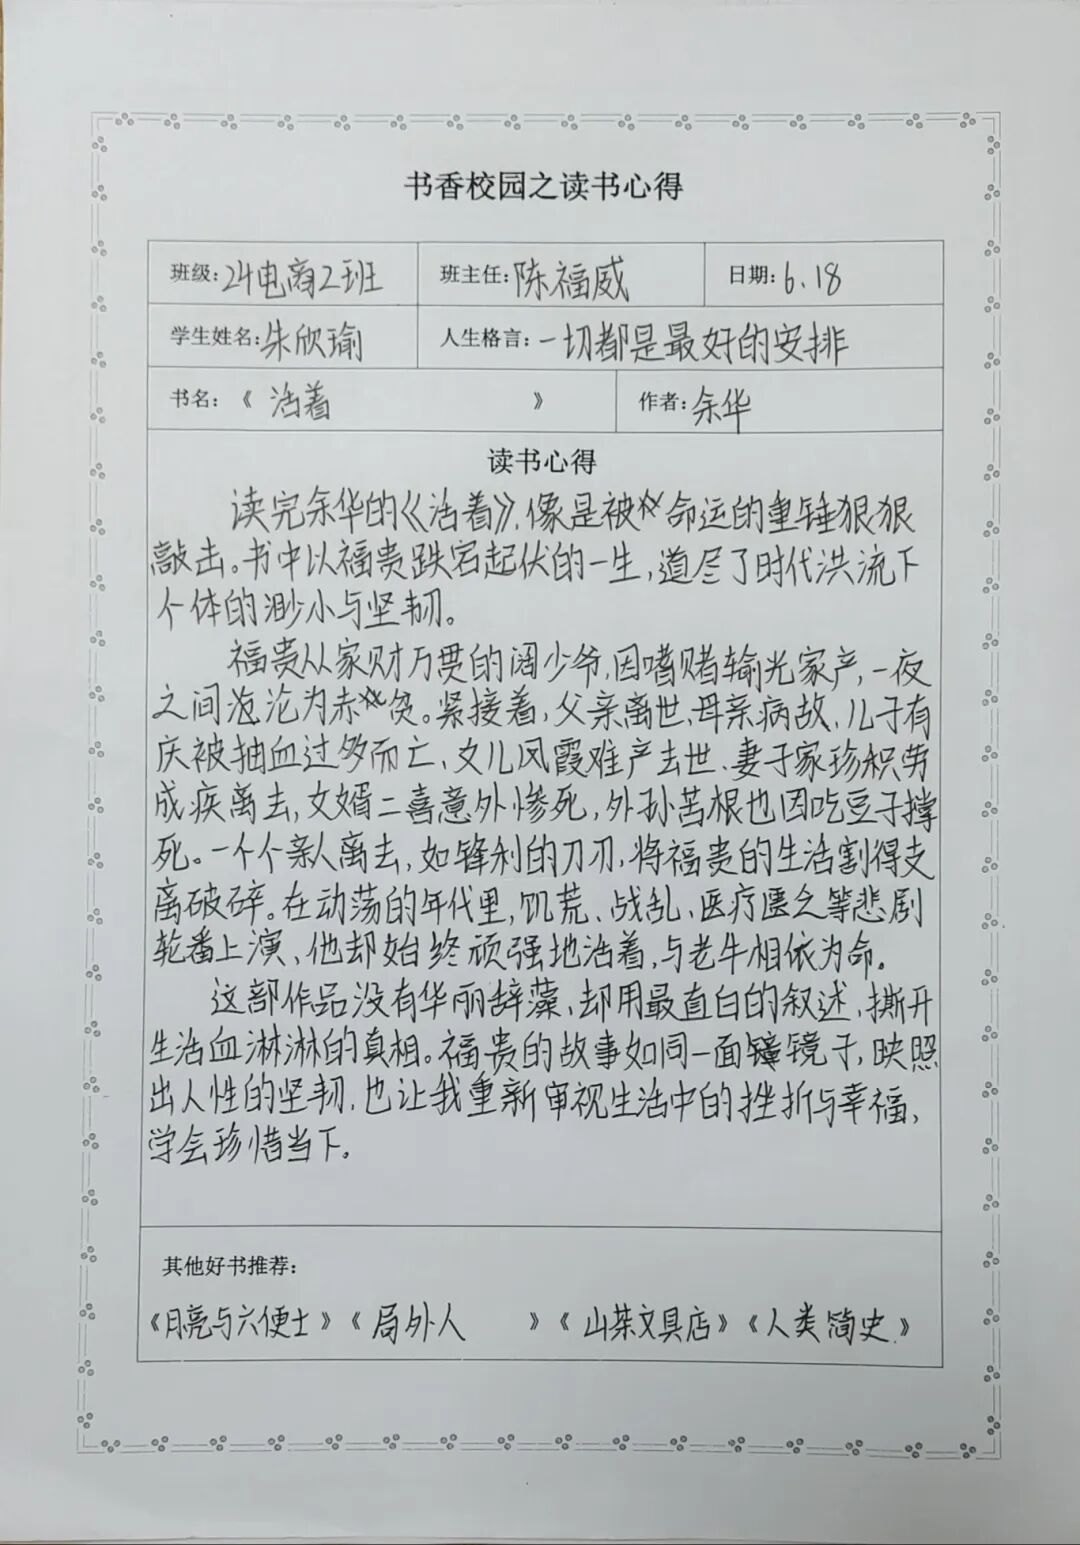 书香校园之读书心得
班级:24电商2班 班主任:陈福威 日期:6.18
学生姓名:朱欣瑜 人生格言:一切都是最好的安排
书名:《活着》 作者:余华
读书心得
读完余华的《活着》,像是被命运的重锤狠狠
敲击。书中以福贵跌宕起伏的一生,道尽了时代洪流下
个体的渺小与坚韧。
福贵从家财万贯的阔少爷,因嗜赌输光家产,一夜
之间沦为赤贫。紧接着,父亲离世、母亲病故、儿子有
庆被抽血过多而亡、女儿凤霞难产去世、妻子家珍积劳
成疾离去,女婿二喜意外惨死,外孙苦根也因吃豆子撑
死。一个个亲人离去,如锋利的刀刃,将福贵的生活割得支
离破碎。在动荡的年代里,饥荒、战乱、医疗匮乏等悲剧
轮番上演、他却始终顽强地活着,与老牛相依为命。
这部作品没有华丽辞藻,却用最直白的叙述,撕开
生活血淋淋的真相。福贵的故事如同一面镜子,映照
出人性的坚韧,也让我重新审视生活中的挫折与幸福,
学会珍惜当下。
其他好书推荐:
《月亮与六便士》《局外人》《山茶文具店》《人类简史》